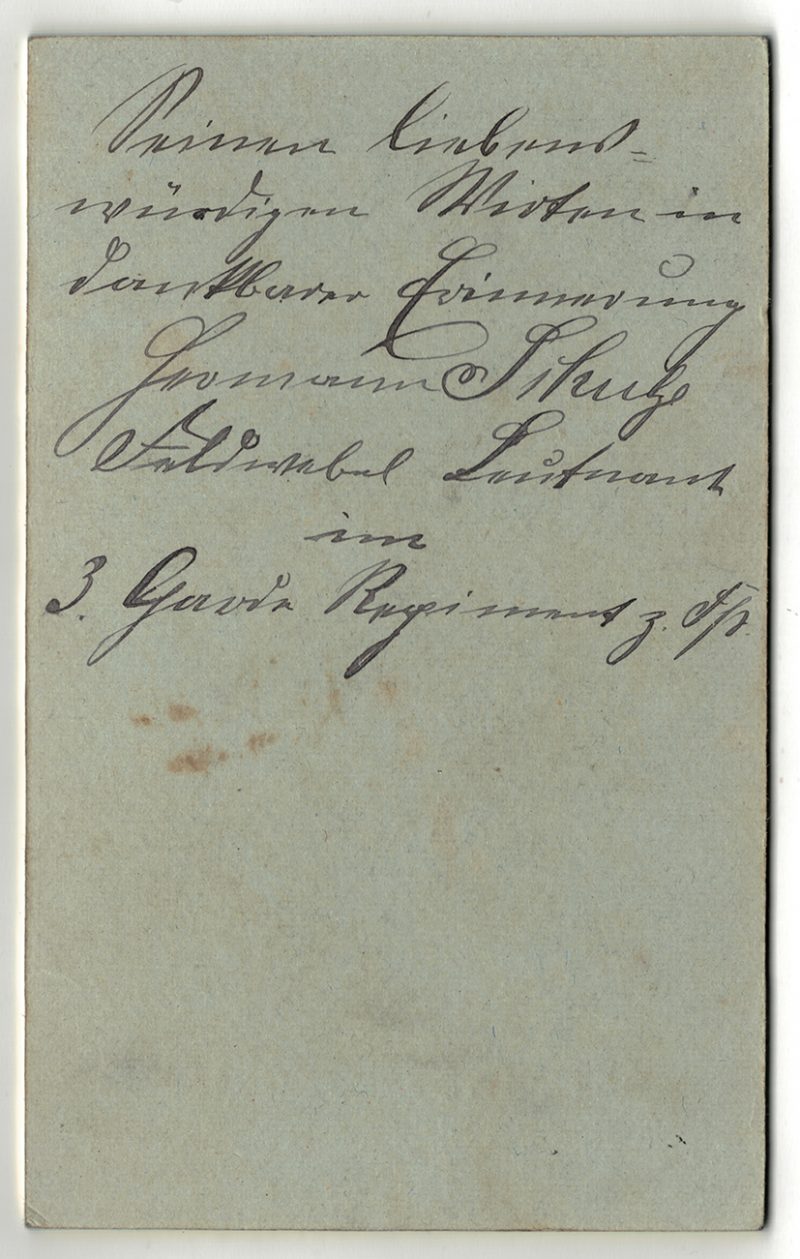 Seinen liebens-
würdigen Wirten in
dankbarer Erinnerung
Hermann
Feldwebel Leutnant
im
3. Garde Regiment z. Fß.